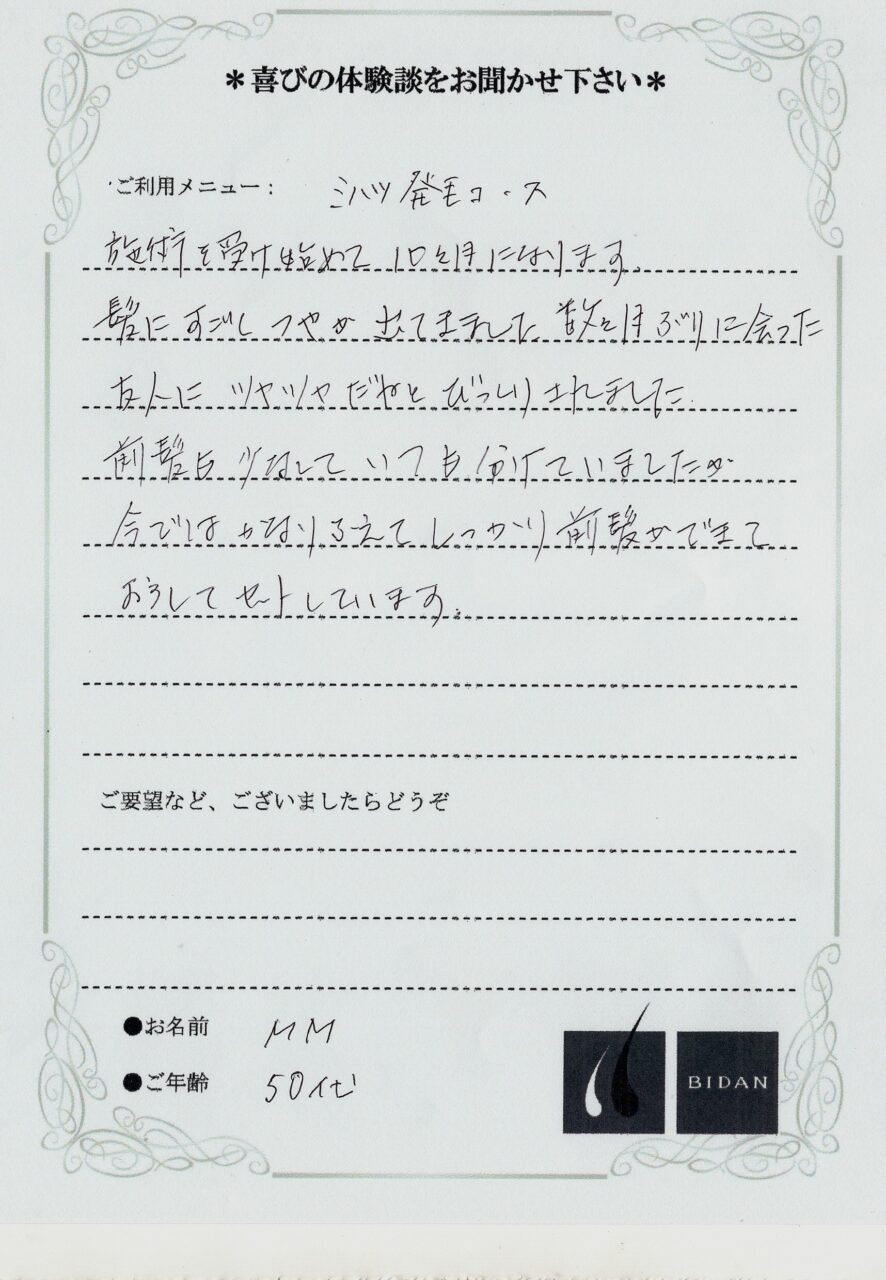 ＊喜びの体験談をお聞かせ下さい＊
ご利用メニュー： ミハツ発毛コース
施術を受け始めて10ヶ月になります。
髪にすごしつやが出てきました。数ヶ月ぶりに会った
友人にツヤツヤだねとびっくりされました。
前髪も少なしていつも分けていましたが
今ではかなりふえてしっかり前髪ができて
おろしてセットしています。
ご要望など、ございましたらどうぞ
●お名前 MM
●ご年齢 50代
BIDAN